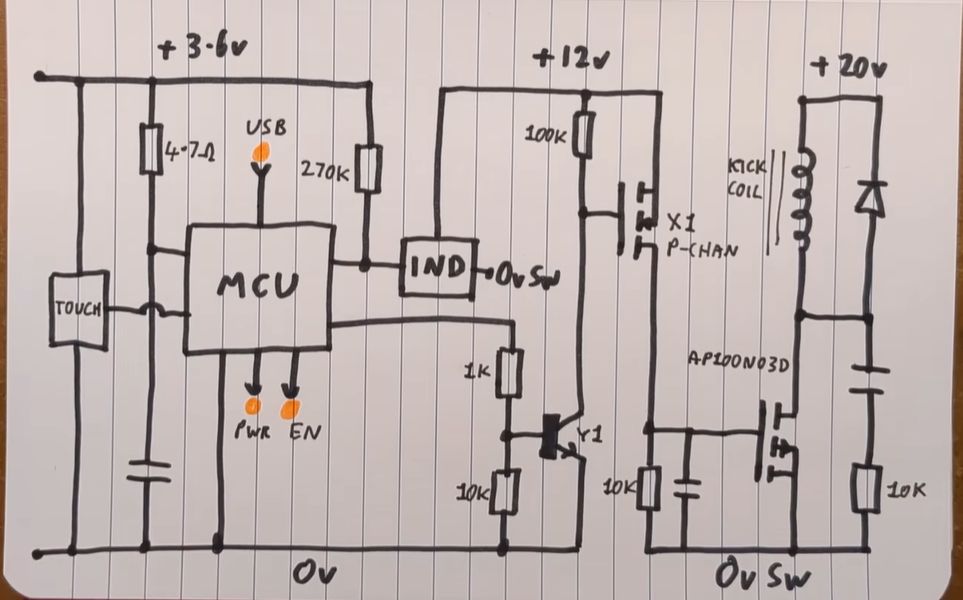 +3.6v
+12v
+20v
USB
4.7Ω
270K
100K
KICK
COIL
X1
P-CHAN
MCU
IND
0v SW
TOUCH
AP100N03D
1K
PWR
EN
Y1
10K
10K
10K
0v
0v SW